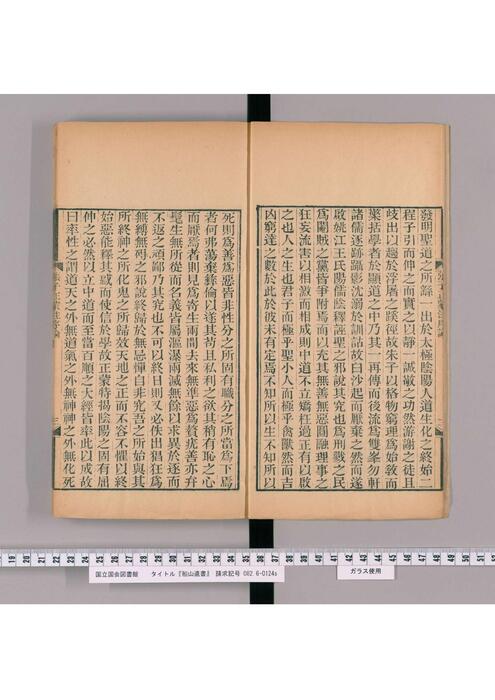 發明聖道之所繇一出於太極陰陽人道生化之終始二
程子引而伸之而實之以靜一誠敬之功然游謝之徒且
岐出以趨於浮屠之蹊徑故朱子以格物窮理爲始教而
檠括學者於顯道之中乃其一再傳而後流爲雙峯勿軒
諸儒逐跡躡影沈溺於訓詁故白沙起而厭棄之然而遂
啟姚江王氏陽儒陰釋誣聖之邪說其究也爲刑戮之民
爲閹賊之黨皆爭附焉而以充其無善無惡圓融理事之
狂妄流害以相激而相成則中道不立矯枉過正有以啟
之也人之生也君子而極乎聖小人而極乎禽獸然而吉
凶窮達之數於此於彼未有定焉不知所以生不知所以
死則爲善爲惡皆非性分之所固有職分之所當爲下焉
者何弗蕩棄彝倫以遂其苟且私利之欲其稍有恥之心
而厭焉者則見爲寄生兩閒去來無準惡爲贅疣善亦弁
髦生無所從而名義皆屬漚瀑兩滅無餘以求異於逐而
不返之頑鄙乃其究也不可以終日則又必佚出猖狂爲
無縛無碍之邪說終歸於無忌憚自非究吾之所始與其
所終神之所化鬼之所歸效天地之正而不容不懼以終
始惡能釋其惑而使信於學故正蒙特揭陰陽之固有屈
伸之必然以立中道而至當百順之大經皆率此以成故
曰率性之謂道天之外無道氣之外無神神之外無化死
19 20 21 22 23 24 25 26 27 28 29 30 31 32 33 34 35 36 37 38 39 40 41 42 43 44 45 46 47 48 49 50 51 52
国立国会図書館　タイトル『船山遺書』　請求記号 082.6-0124s
ガラス使用